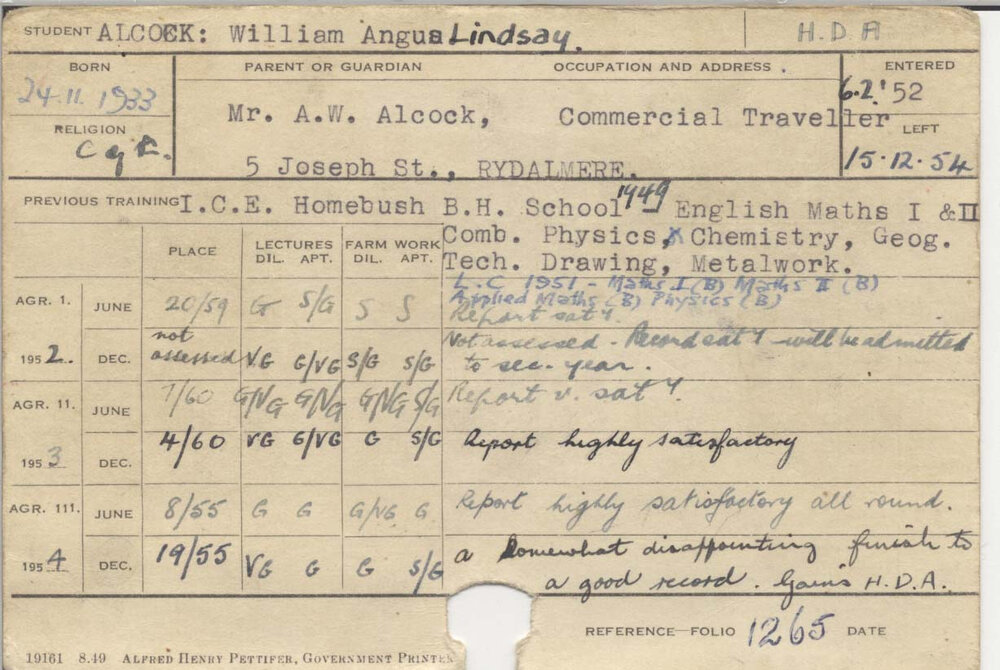 STUDENT ALCOCK: William Angus Lindsay. H.D.A
BORN PARENT OR GUARDIAN OCCUPATION AND ADDRESS. ENTERED
24.11.1933 6.2.'52
Mr. A.W. Alcock, Commercial Traveller
RELIGION LEFT
C of E. 5 Joseph St., RYDALMERE. 15.12.54
PREVIOUS TRAINING I.C.E. Homebush B.H. School 1949 English Maths I & II
Comb. Physics, Chemistry, Geog.
Tech. Drawing, Metalwork.
PLACE LECTURES FARM WORK
DIL. APT. DIL. APT.
L.C 1951 - Maths I (B) Maths II (B)
Applied Maths (B) Physics (B)
AGR. 1. JUNE 20/59 G S/G S S Report sat y.
1952. DEC. not assessed VG G/VG S/G S/G Not assessed - Record sat y - will be admitted
to sec. year.
AGR. 11. JUNE 7/60 G/VG G/VG G/VG S/G Report v. sat y.
1953 DEC. 4/60 VG G/VG G S/G Report highly satisfactory
AGR. 111. JUNE 8/55 G G G/VG G Report highly satisfactory all round.
1954 DEC. 19/55 VG G G S/G a somewhat disappointing finish to
a good record. Gains H.D.A.
REFERENCE-FOLIO 1265 DATE
19161 8.49 ALFRED HENRY PETTIFER, GOVERNMENT PRINTER